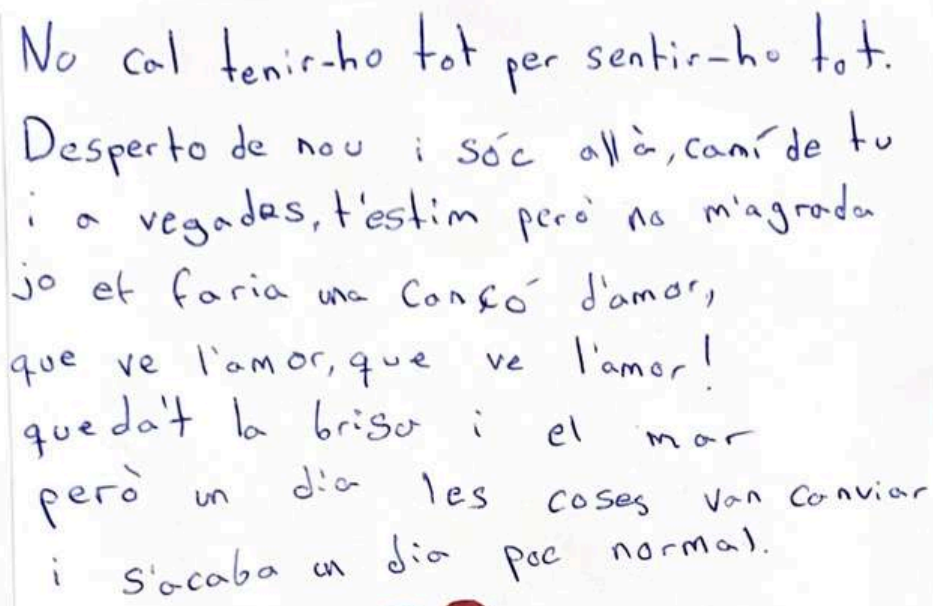 No cal tenir-ho tot per sentir-ho tot.
Desperto de nou i sóc allà, camí de tu
i a vegades, t'estim però no m'agrada
jo et faria una Cançó d'amor,
que ve l'amor, que ve l'amor!
queda't la brisa i el mar
però un dia les coses van conviar
i s'acaba un dia poc normal.